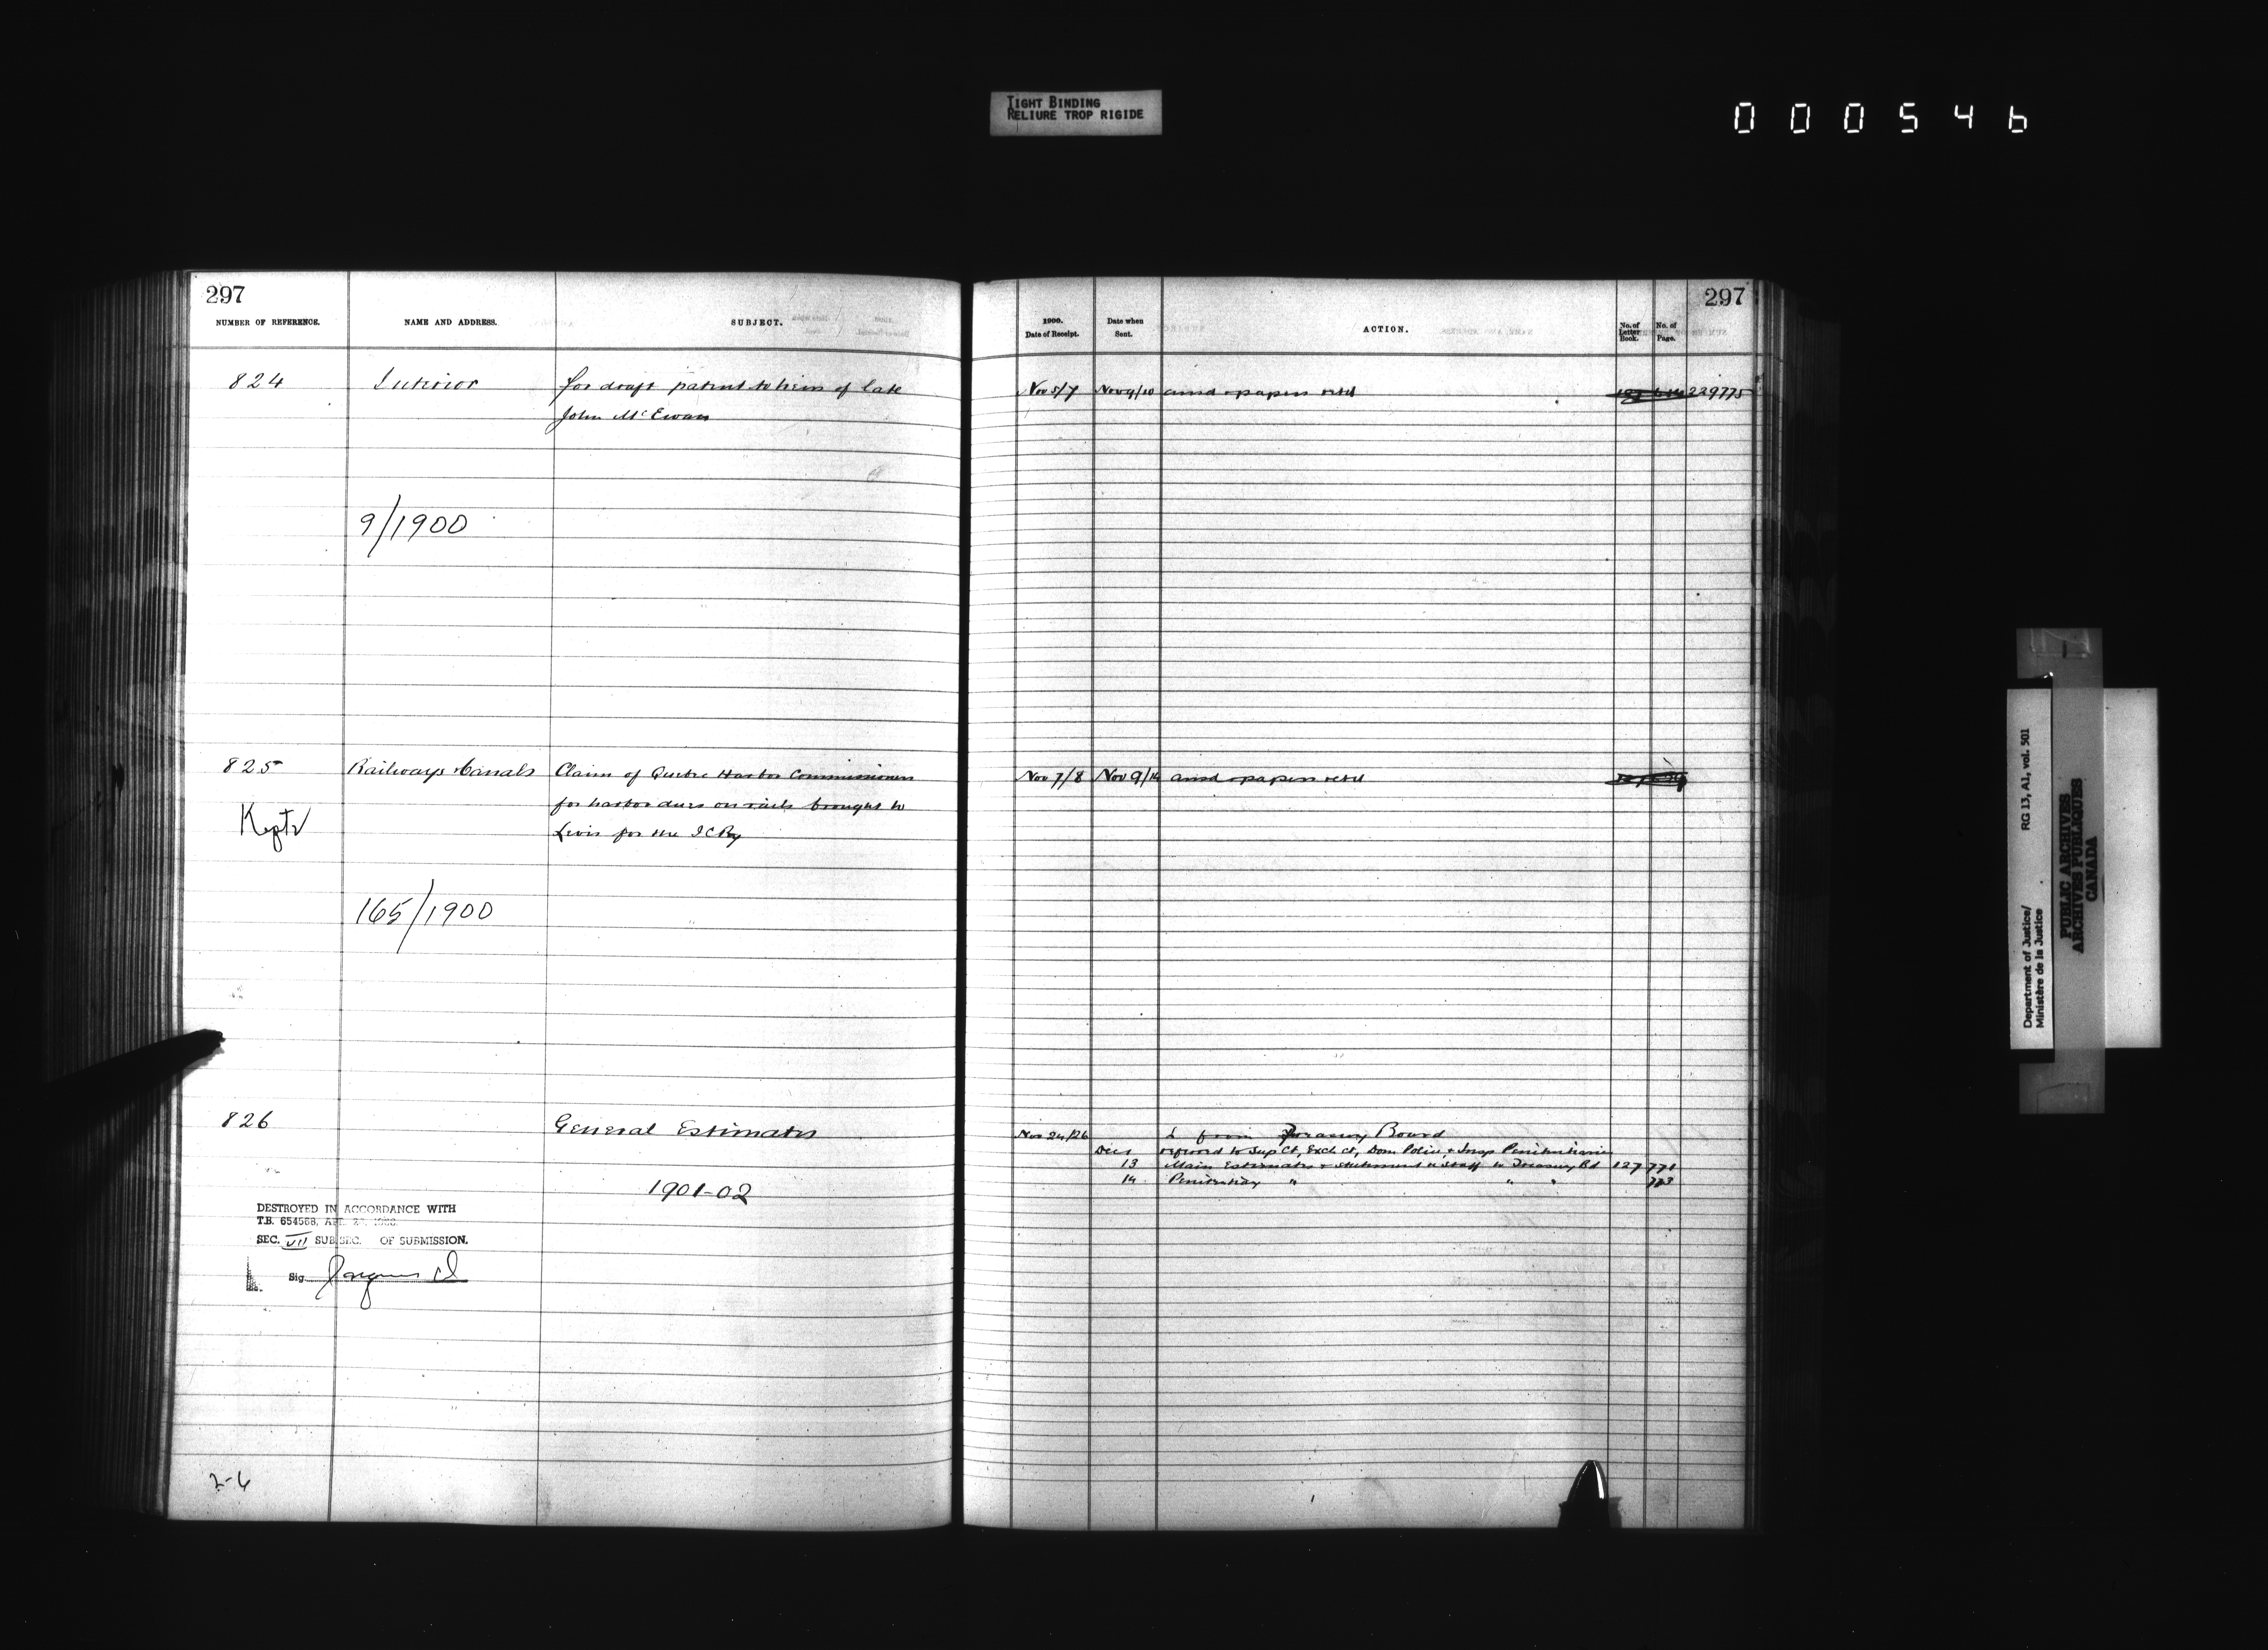 TIGHT BINDING
RELIURE TROP RIGIDE
000546
297
NUMBER OF REFERENCE. NAME AND ADDRESS. SUBJECT.
824 Interior for draft patent to heirs of late
John McEwan
9/1900
825 Railways & Canals Claim of Quebec Harbor Commissioners
for harbor dues on rails brought to
Kept Levis for the ICRy
165/1900
826 General Estimates
1901-02
DESTROYED IN ACCORDANCE WITH
T.B. 654568,
SEC. VII SUB SEC. OF SUBMISSION.
Sig
2-6
297
1900.
Date of Receipt. Date when Sent. ACTION. No. of Letter Book. No. of Page.
Nov 5/7 Nov 9/10 ansd & papers retd 229775
Nov 7/8 Nov 9/10 ansd & papers retd
Nov 24/26 L from Treasury Board
Dec 1 referred to Sup Ct, Exch Ct, Dom Police, & Insp Penitentiaries
13 Main Estimates & statement of staff to Treasury Bd 127 771
14 Penitentiary " " " 773
Department of Justice/
Ministère de la Justice
RG 13, A1, vol. 501
PUBLIC ARCHIVES
ARCHIVES PUBLIQUES
CANADA